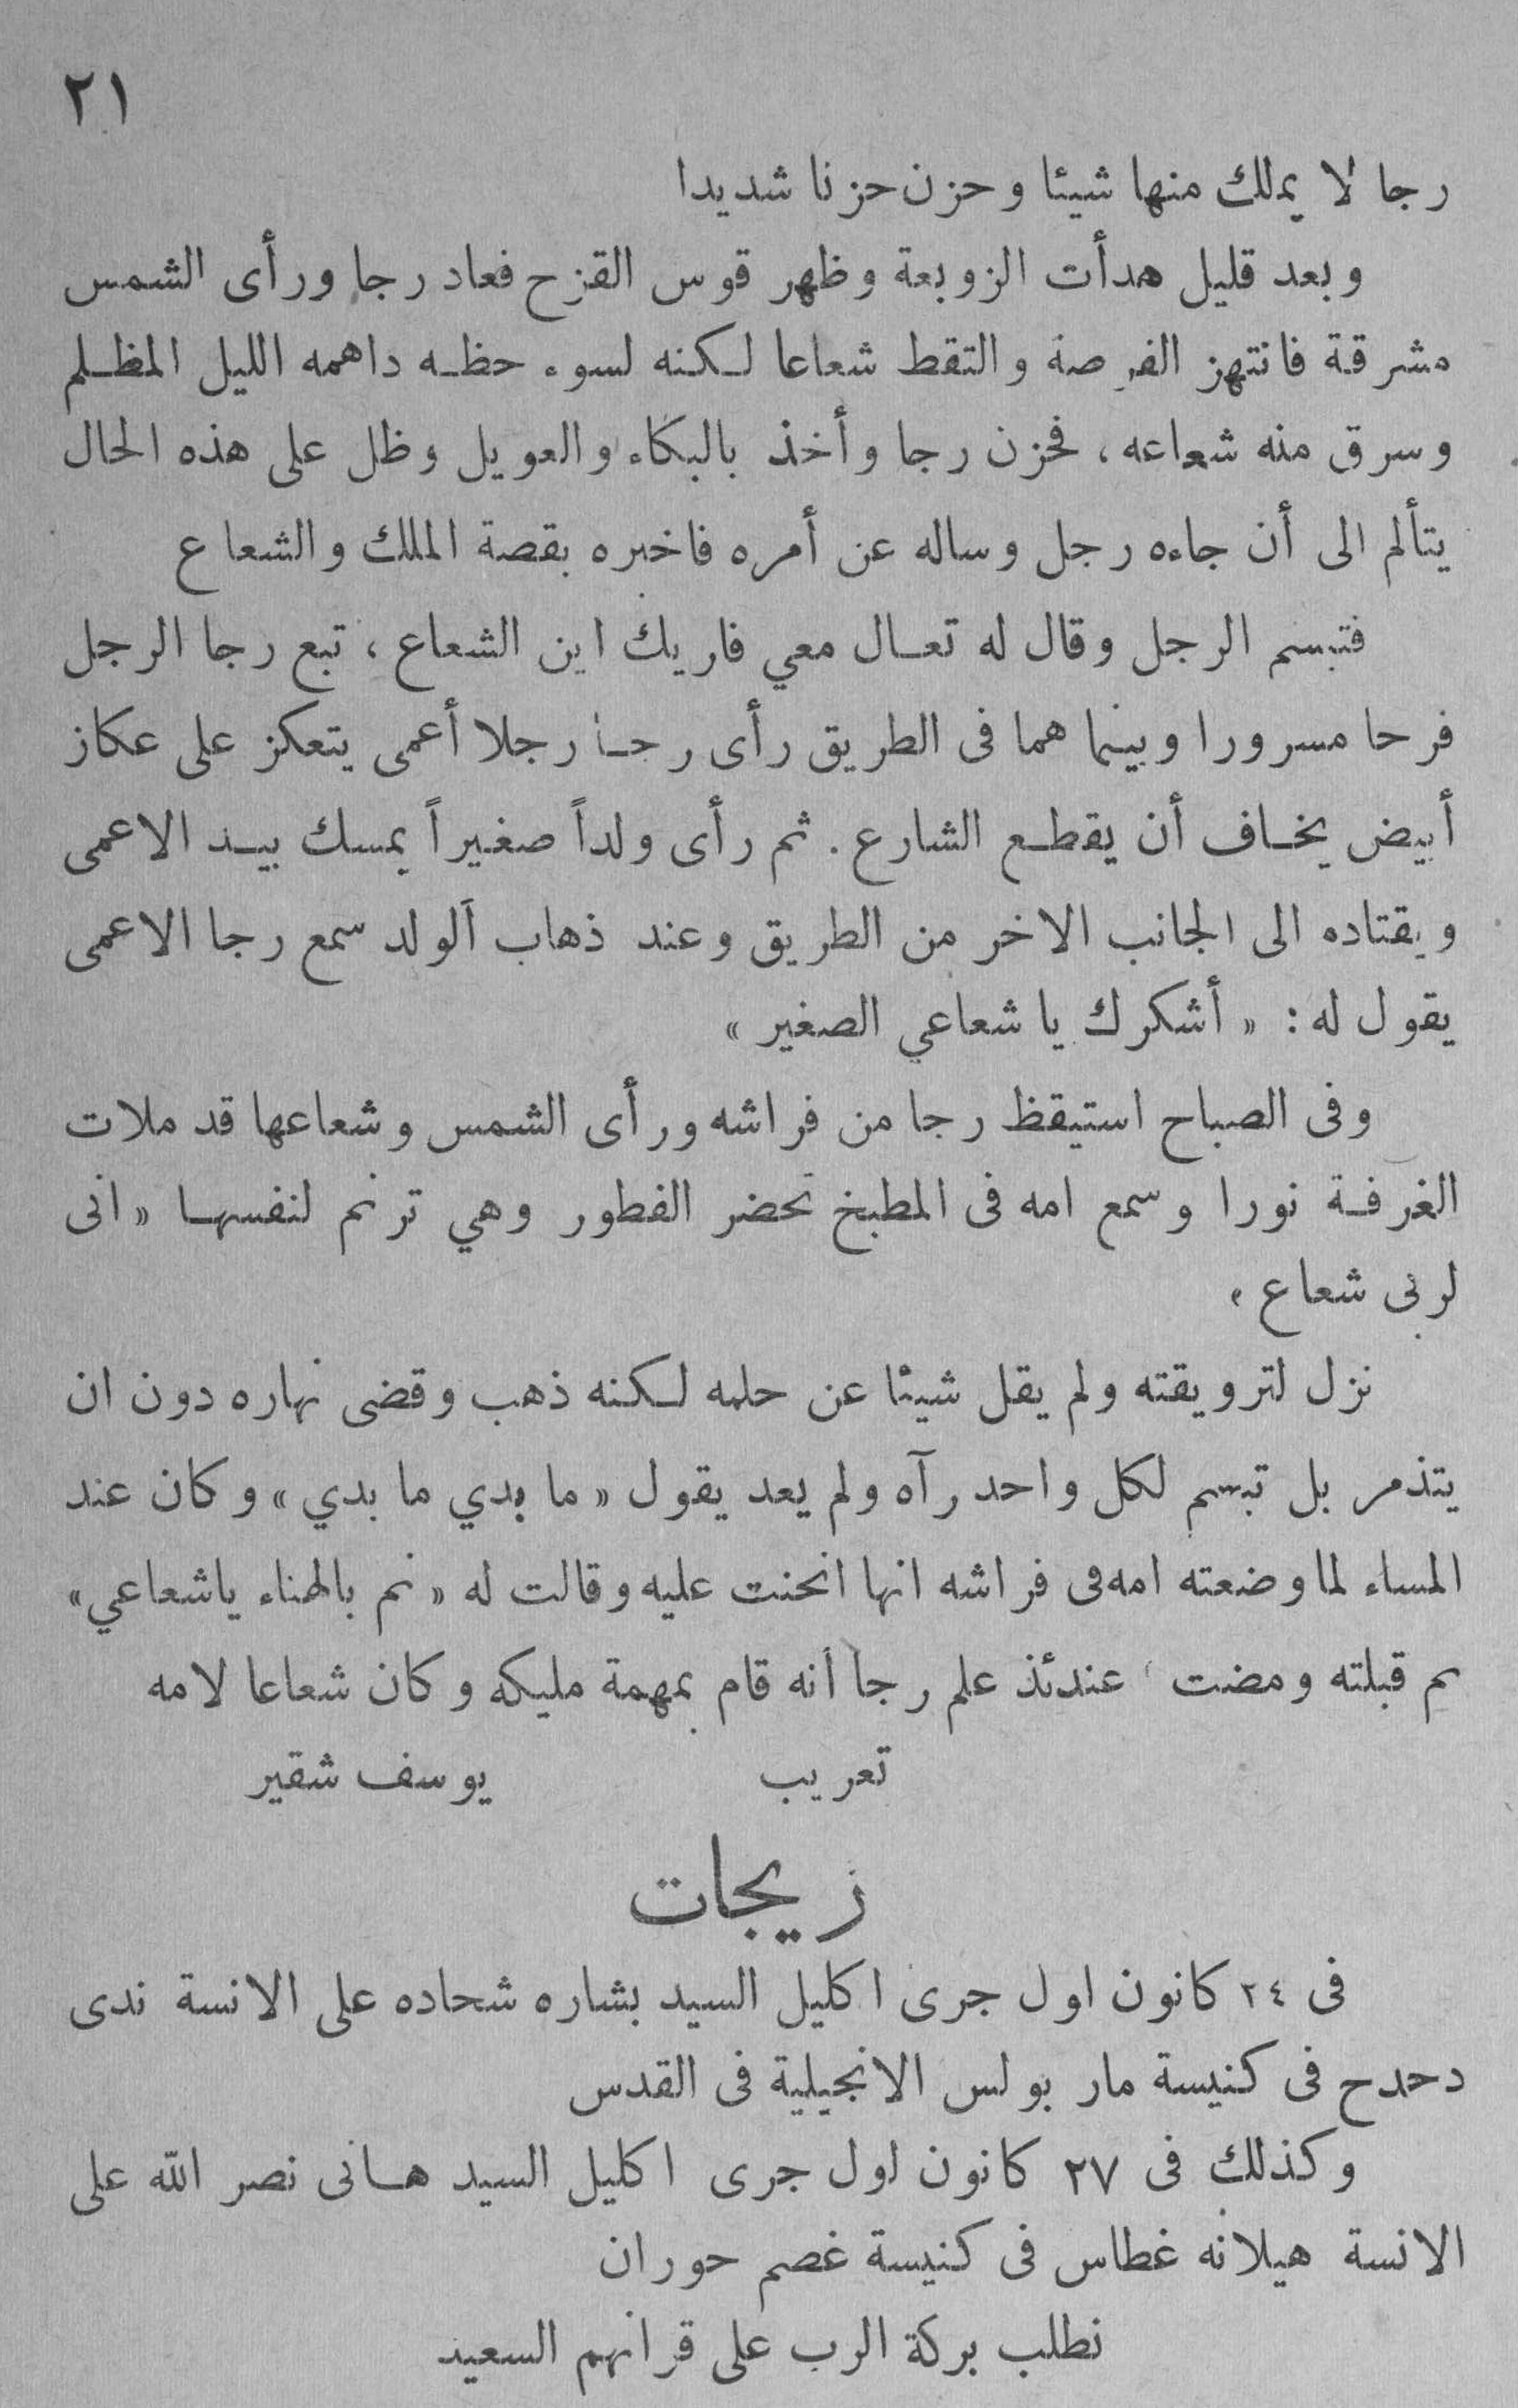 ٢١
رجا لا يملك منها شيئا وحزن حزنا شديدا
وبعد قليل هدأت الزوبعة وظهر قوس القزح فعاد رجا ورأى الشمس
مشرقة فانتهز الفرصة والتقط شعاعا لكنه لسوء حظه داهمه الليل المظلم
وسرق منه شعاعه، فحزن رجا وأخذ بالبكاء والعويل وظل على هذه الحال
يتألم الى أن جاءه رجل وساله عن أمره فاخبره بقصة الملك والشعاع
فتبسم الرجل وقال له تعال معي فاريك اين الشعاع، تبع رجا الرجل
فرحا مسرورا وبينما هما فى الطريق رأى رجا رجلا أعمى يتعكز على عكاز
أبيض يخاف أن يقطع الشارع. ثم رأى ولداً صغيراً يمسك بيد الاعمى
ويقتاده الى الجانب الاخر من الطريق وعند ذهاب الولد سمع رجا الاعمى
يقول له: «أشكرك يا شعاعي الصغير»
وفى الصباح استيقظ رجا من فراشه ورأى الشمس وشعاعها قد ملات
الغرفة نورا وسمع امه فى المطبخ تحضر الفطور وهي ترنم لنفسها «انى
لربى شعاع»
نزل لترويقته ولم يقل شيئا عن حلمه لكنه ذهب وقضى نهاره دون ان
يتذمر بل تبسم لكل واحد رآه ولم يعد يقول «ما بدي ما بدي» وكان عند
المساء لما وضعته امه فى فراشه انها انحنت عليه وقالت له «نم بالهناء ياشعاعي»
ثم قبلته ومضت، عندئذ علم رجا أنه قام بمهمة مليكه وكان شعاعا لامه
تعريب يوسف شقير
زيجات
فى ٢٤ كانون اول جرى اكليل السيد بشاره شحاده على الانسة ندى
دحدح فى كنيسة مار بولس الانجيلية فى القدس
وكذلك فى ٢٧ كانون اول جرى اكليل السيد هانى نصر الله على
الانسة هيلانه غطاس فى كنيسة غصم حوران
نطلب بركة الرب على قرانهم السعيد